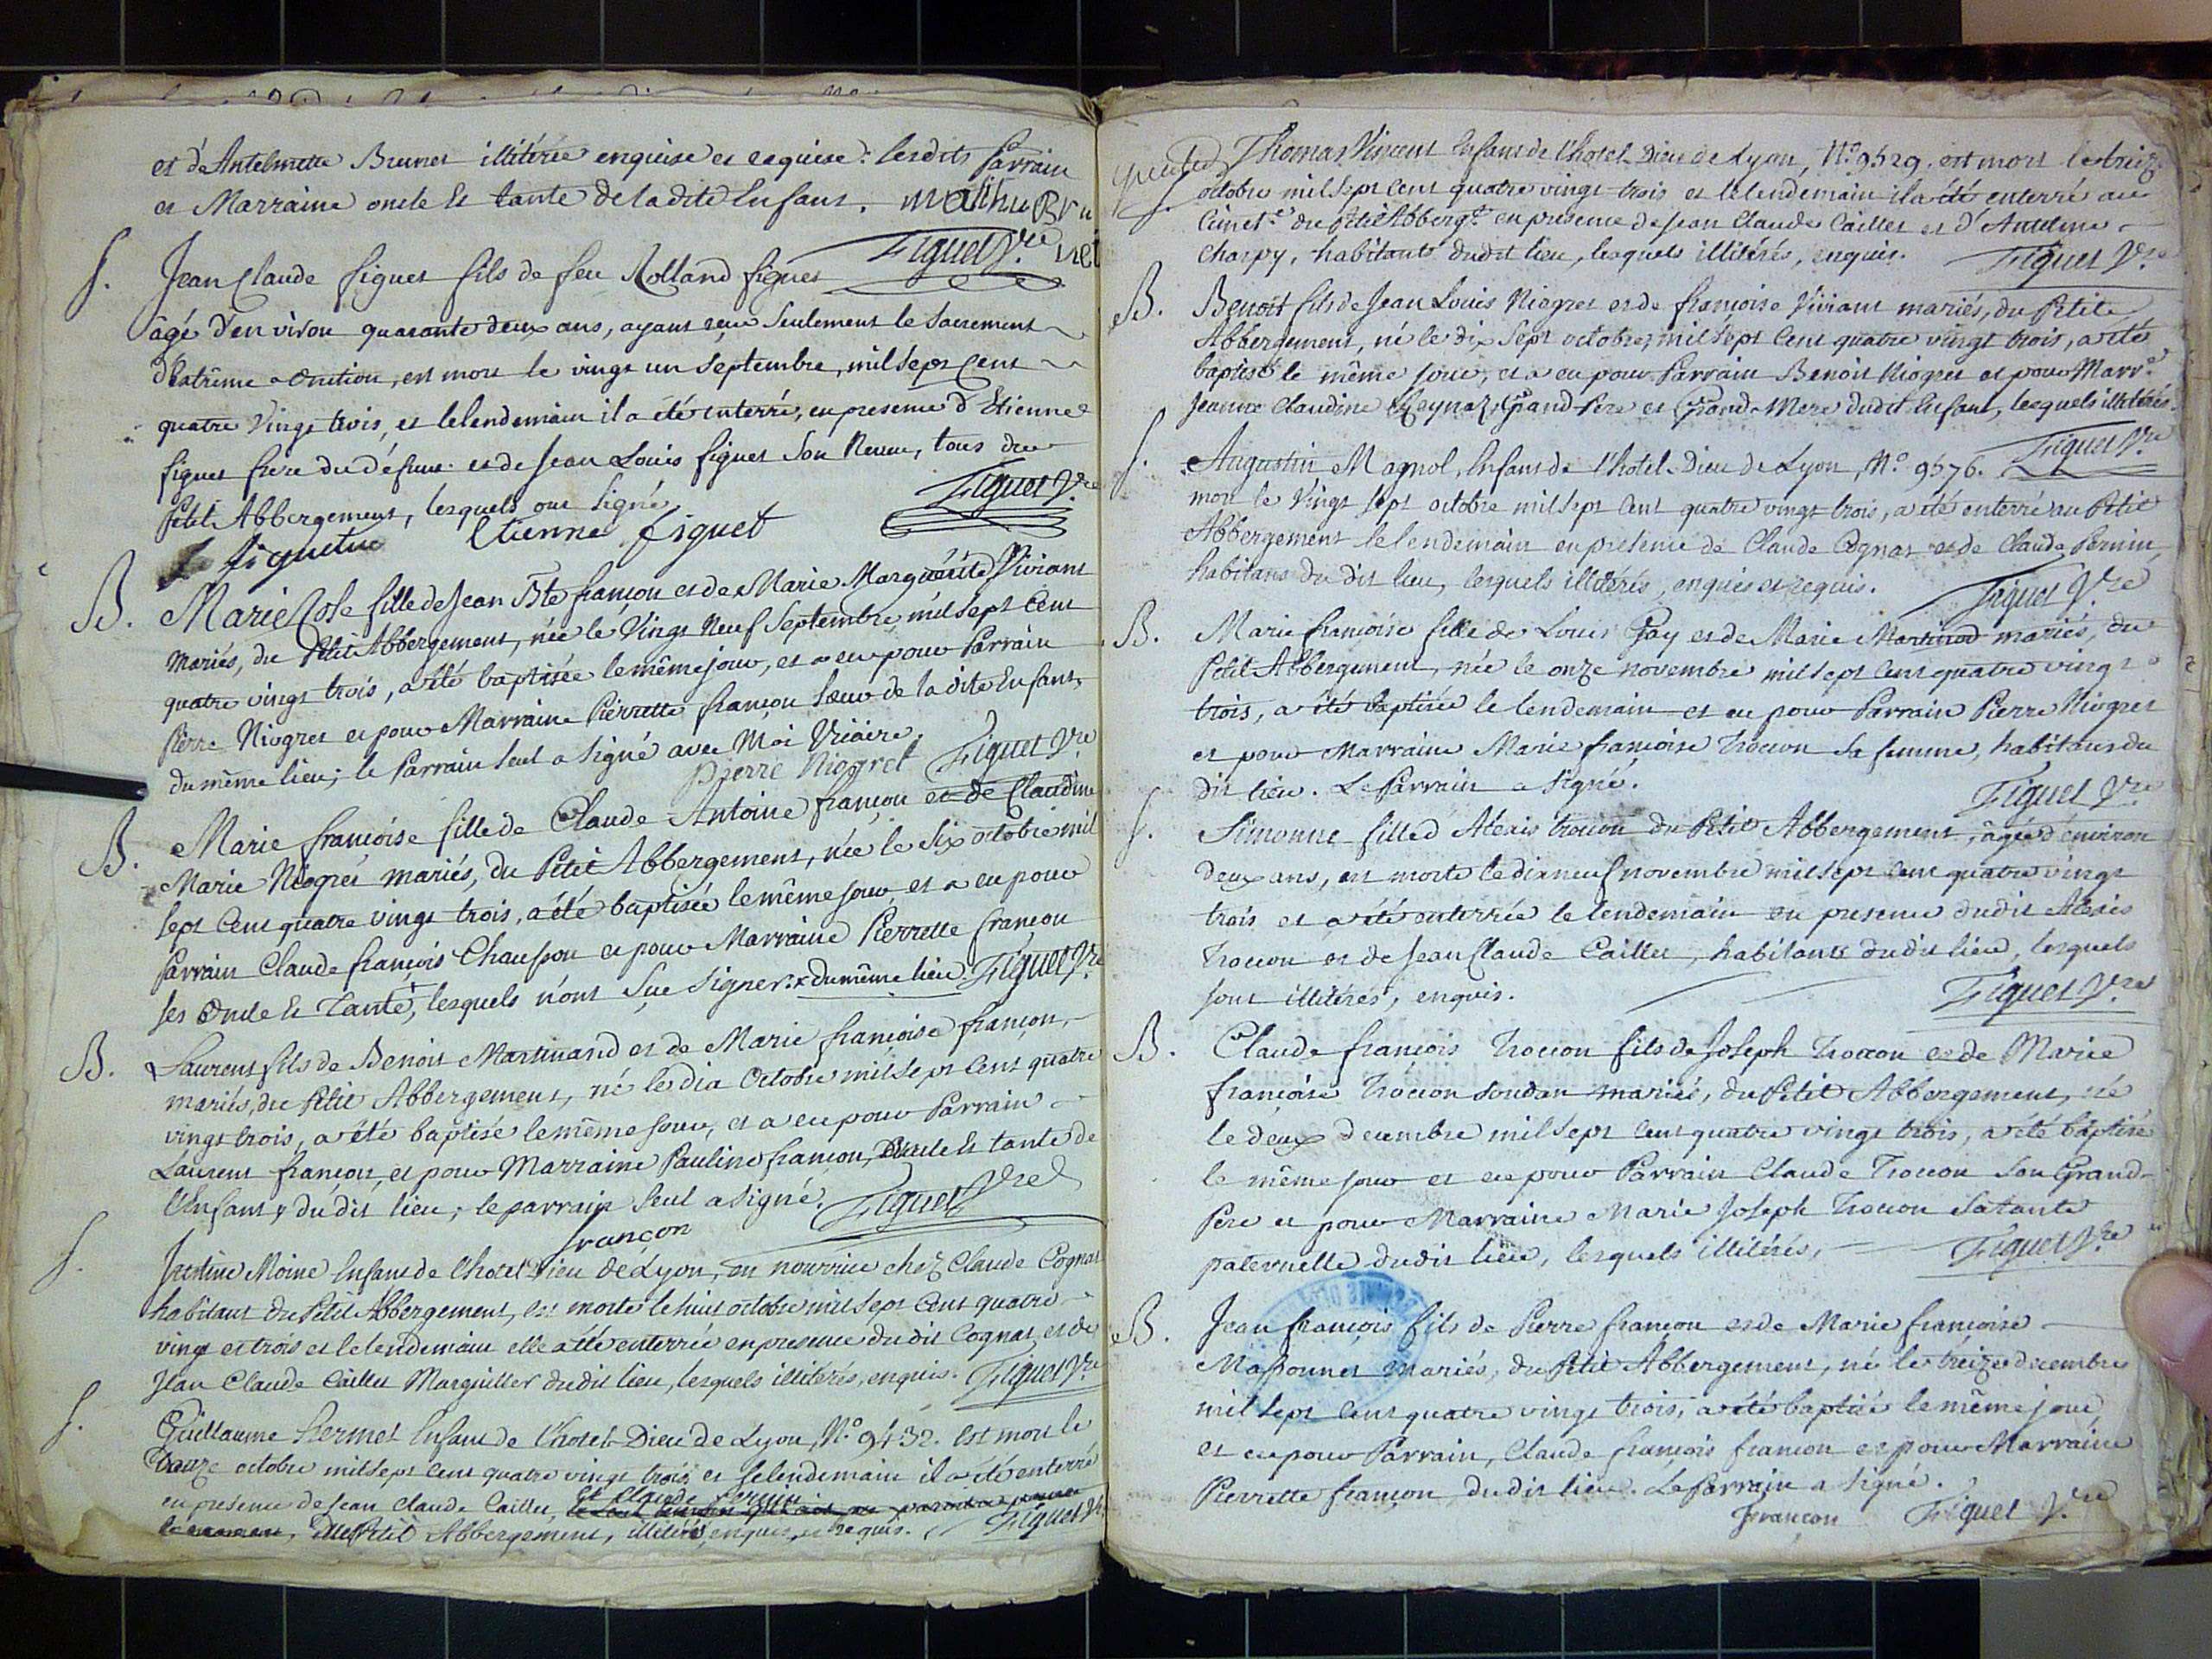 et d'Antelmette Brunet illitérée enquise et requise: lesdits Parrain
et Marraine oncle et tante de ladite Enfant. mathieu Bru
net
Figuet Vre
S. Jean Claude figuet fils de feu Rolland figuet
âgé d'environ quarante deux ans, ayant reçu seulement le Sacrement
d'Extrême-onction, est mort le vingt un Septembre, mil sept cent
quatre vingt trois, et le lendemain il a été enterré, en presence d'Etienne
figuet frere du défunt et de Jean Louis figuet son Neveu, tous du
Petit Abbergement, lesquels ont signé
Figuet Vre
Etienne figuet
B. Marie Rose fille de Jean Bte françon et de Marie Marguérite Viviant
mariés, du Petit Abbergement, née le Vingt Neuf Septembre mil sept Cent
quatre vingt trois, a été baptisée le même jour, et a eu pour Parrain
Pierre Niogret et pour Marraine Pierrette françon soeur de la dite Enfant,
du même lieu; le Parrain seul a signé avec Moi Vicaire.
Pierre Niogret Figuet Vre
B. Marie françoise fille de Claude Antoine françon et de Claudine
Marie Niogret mariés, du Petit Abbergement, née le Six octobre mil
sept Cent quatre vingt trois, a été baptisée le même jour, et a eu pour
Parrain Claude françois Chausson et pour Marraine Pierrette françon
ses Oncle et Tante, lesquels n'ont sçu signer. x du même lieu. Figuet Vre
B. Laurent fils de Benoit Martinand et de Marie françoise françon,
mariés, du Petit Abbergement, né le dix Octobre mil sept Cent quatre
vingt trois, a été baptisé le même jour, et a eu pour Parrain
Laurent françon, et pour Marraine Pauline françon, Oncle et tante de
l'Enfant, du dit lieu; le parrain seul a signé. Figuet Vre
françon
S. Justine Moine Enfant de l'hotel-Dieu de Lyon, en nourrice chez Claude Cognat
habitant du Petit Abbergement, est morte le huit octobre mil sept Cent quatre
vingt et trois et le lendemain elle a été enterrée en presence du dit Cognat et de
Jean Claude Caillet Marguillier dudit lieu, lesquels illitérés, enquis. Figuet Vre
S. Guillaume hermet Enfant de l'hotel-Dieu de Lyon, No. 9432. Est mort le
octobre mil sept Cent quatre vingt trois et le lendemain il a été enterré
en presence de Jean Claude Caillet, et Claude Perrin
du Petit Abbergement, illitérés, enquis et requis. Figuet Vre
S. Thomas Vincent Enfant de l'hotel-Dieu de Lyon, No. 9529. est mort le treize
octobre mil sept Cent quatre vingt trois et le lendemain il a été enterré au
Cimet.e du Petit Abberg.t en presence de Jean Claude Caillet et d'Antelme
Charpy, habitants dudit lieu, lesquels illitérés, enquis. Figuet Vre
B. Benoit fils de Jean Louis Niogret et de françoise Viviant mariés, du Petit
Abbergement, né le dix Sept octobre, mil sept Cent quatre vingt trois, a été
baptisé le même jour, et a eu pour Parrain Benoit Niogret et pour Marr.e
Jeanne Claudine Reynaz, Grand-Pere et Grand-Mere dudit Enfant, lesquels illitérés.
Figuet Vre
S. Augustin Magnol, Enfant de l'hotel-Dieu de Lyon, No. 9576.
mort le Vingt sept octobre mil sept Cent quatre vingt trois, a été enterré au Petit
Abbergement le lendemain en presence de Claude Cognat et de Claude Perrin,
habitans du dit lieu, lesquels illitérés, enquis et requis. Figuet Vre
B. Marie françoise fille de Louis Gay et de Marie Martinod mariés, du
Petit Abbergement, née le onze novembre mil sept Cent quatre vingt
trois, a été baptisée le lendemain et eu pour Parrain Pierre Niogret
et pour Marraine Marie françoise Trocon sa femme, habitans du
dit lieu. Le Parrain a signé. Figuet Vre
S. Simonne fille d'Alexis trocon du Petit Abbergement, âgée d'environ
deux ans, est morte le dixneuf novembre mil sept Cent quatre vingt
trois et a été enterrée le lendemain en presence dudit Alexis
Trocon et de Jean Claude Caillet, habitants dudit lieu, lesquels
sont illitérés, enquis. Figuet Vre
B. Claude françois Trocon fils de Joseph Trocon et de Marie
françoise Trocon soudan mariés, du Petit Abbergement, né
le deux decembre mil sept Cent quatre vingt trois, a été baptisé
le même jour et eu pour Parrain Claude Trocon son Grand-
Pere et pour Marraine Marie Joseph Trocon sa tante
paternelle dudit lieu, lesquels illitérés. Figuet Vre
B. Jean françois fils de Pierre françon et de Marie françoise
Massonnet mariés, du Petit Abbergement, né le treize decembre
mil sept Cent quatre vingt trois, a été baptisé le même jour
et eu pour Parrain, Claude françois françon et pour Marraine
Pierrette françon, du dit lieu. Le Parrain a signé.
françon Figuet Vre